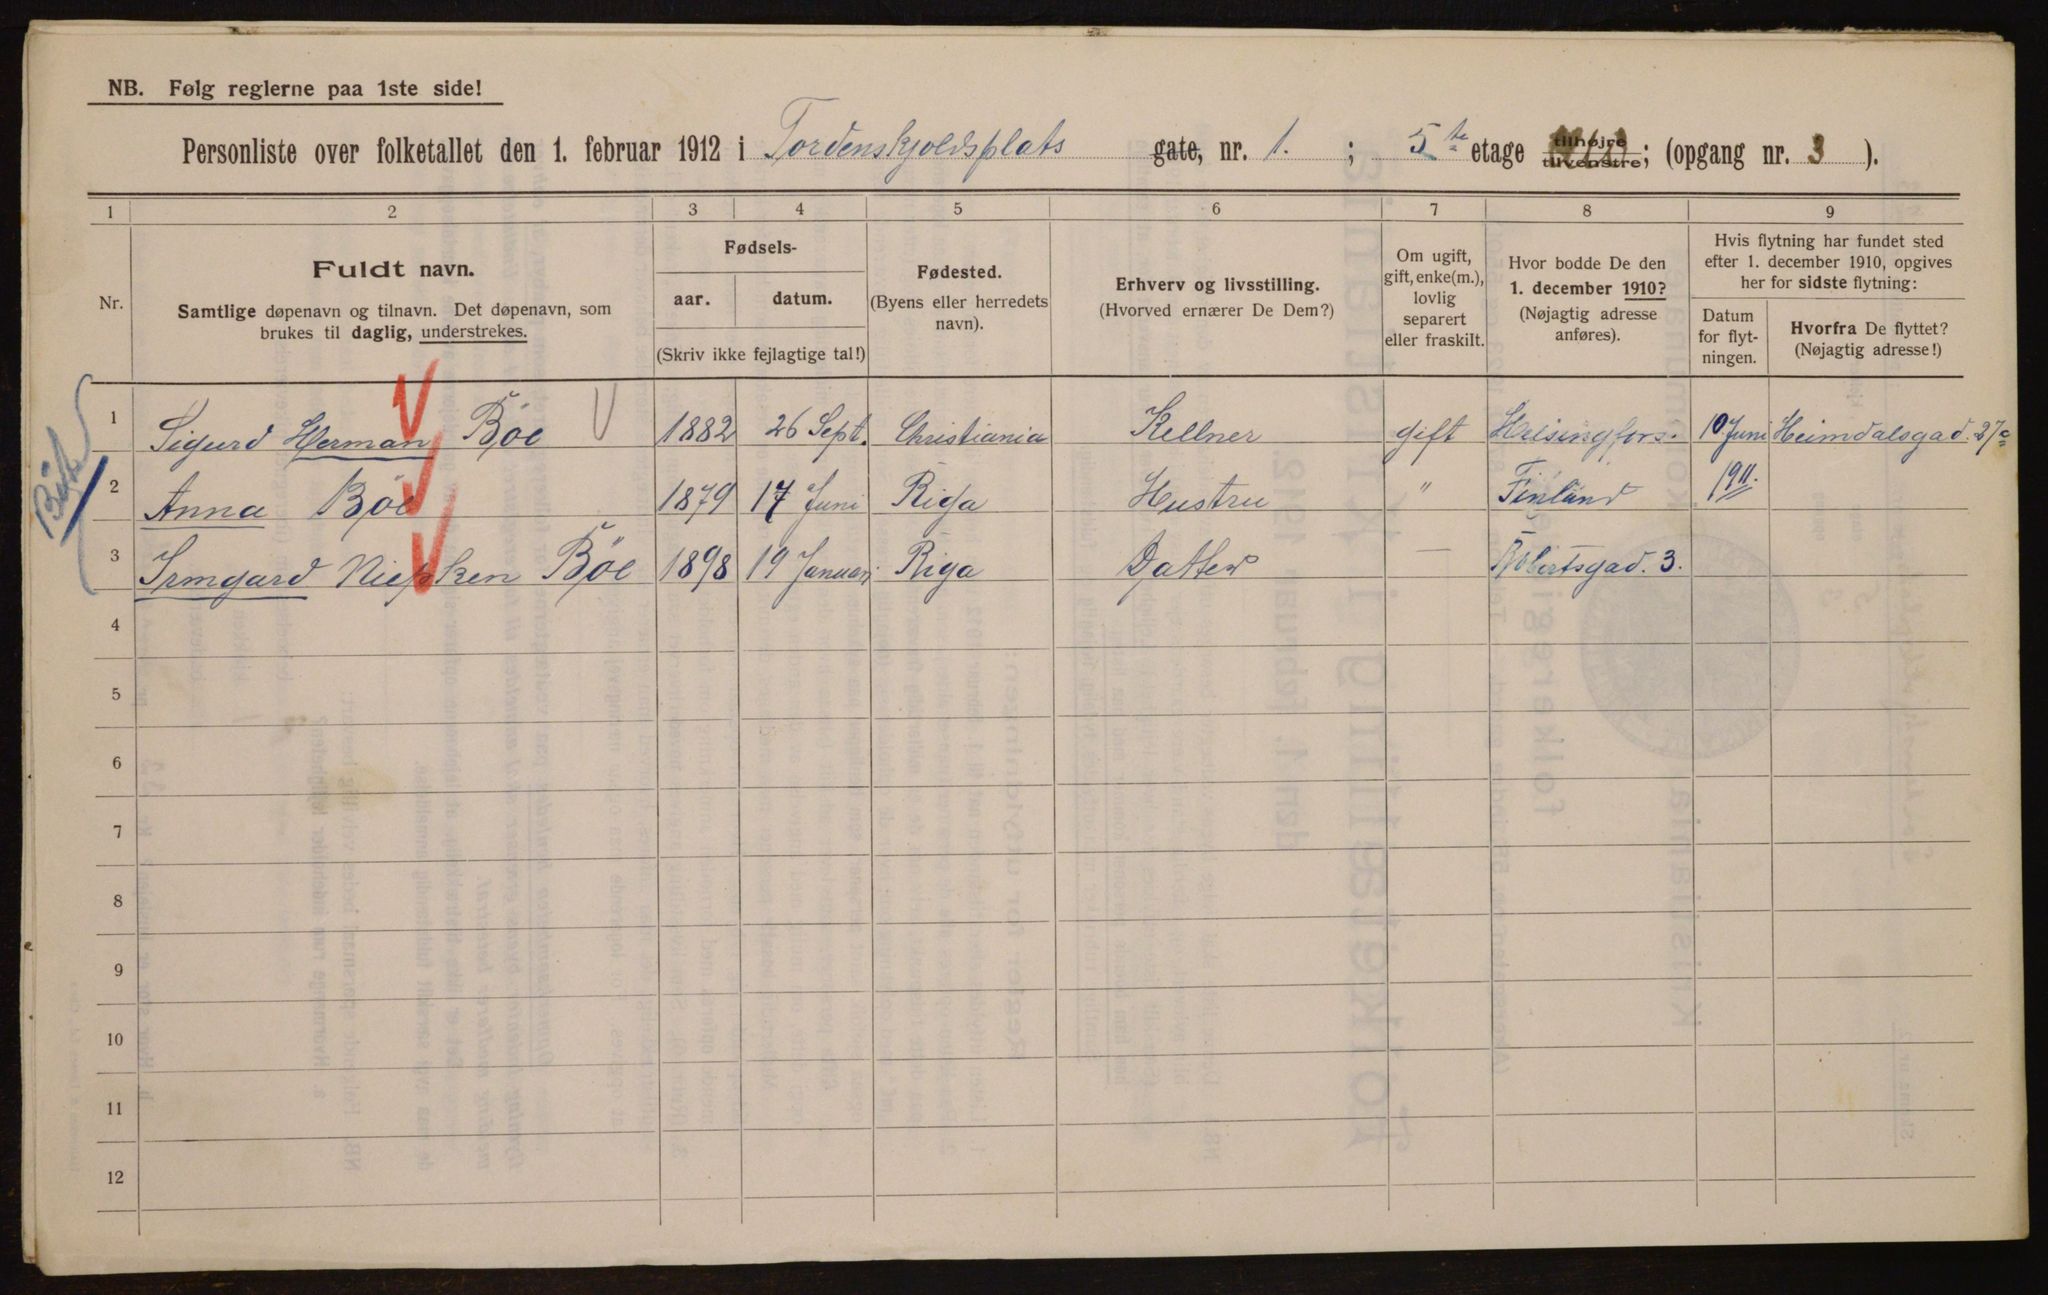 NB. Følg reglerne paa 1ste side!
Personliste over folketallet den 1. februar 1912 i Tordenskjoldsplats gate, nr. 1. ; 5te etage tilhøjre tilvenstre; (opgang nr. 3 ).
1 2 3 4 5 6 7 8 9
Nr.
Fuldt navn.
Samtlige døpenavn og tilnavn. Det døpenavn, som
brukes til daglig, understrekes.
Fødsels-
aar. datum.
(Skriv ikke fejlagtige tal!)
Fødested.
(Byens eller herredets
navn).
Erhverv og livsstilling.
(Hvorved ernærer De Dem?)
Om ugift,
gift, enke(m.),
lovlig
separert
eller fraskilt.
Hvor bodde De den
1. december 1910?
(Nøjagtig adresse
anføres).
Hvis flytning har fundet sted
efter 1. december 1910, opgives
her for sidste flytning:
Datum
for flyt-
ningen.
Hvorfra De flyttet?
(Nøjagtig adresse!)
1 Sigurd Herman Böe 1882 26 Sept. Christiania Kellner gift Helsingfors. 10 Juni Heimdalsgad. 27c
2 Anna Böe 1879 17 Juni Riga Hustru " Finland 1911.
3 Irmgard Niepken Böe 1898 19 Januari Riga Datter — Robertsgad. 3.
4
5
6
7
8
9
10
11
12